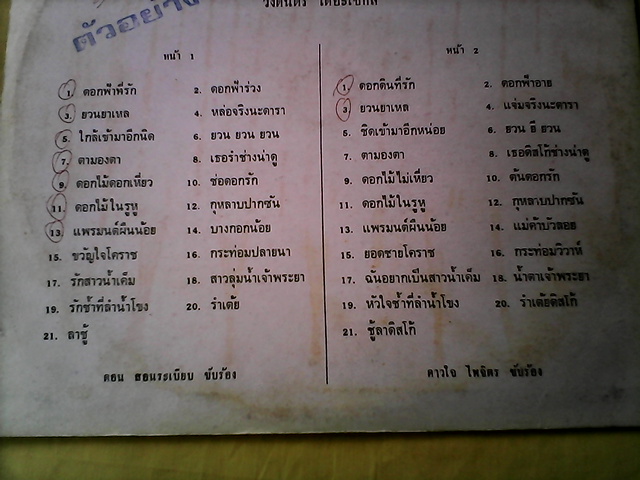 วงดนตรี
ตัวอย่าง
หน้า 1
1. ดอกฟ้าที่รัก 2. ดอกฟ้าร่วง
3. ยวนยาเหล 4. หล่อจริงนะดารา
5. ใกล้เข้ามาอีกนิด 6. ยวน ยวน ยวน
7. ตามองตา 8. เธอรำช่างน่าดู
9. ดอกไม้ดอกเหี่ยว 10. ช่อดอกรัก
11. ดอกไม้ในรูหู 12. กุหลาบปากซัน
13. แพรมนต์ผืนน้อย 14. บางกอกน้อย
15. ขวัญใจโคราช 16. กระท่อมปลายนา
17. รักสาวน้ำเค็ม 18. สาวลุ่มน้ำเจ้าพระยา
19. รักซ้ำที่ลำน้ำโขง 20. รำเต้ย
21. ลาชู้
ขับร้อง
หน้า 2
1. ดอกดินที่รัก 2. ดอกฟ้าอาย
3. ยวนยาเหล 4. แจ่มจริงนะดารา
5. ชิดเข้ามาอีกหน่อย 6. ยวน ยี ยวน
7. ตามองตา 8. เธอดิสโก้ช่างน่าดู
9. ดอกไม้ไม่เหี่ยว 10. ต้นดอกรัก
11. ดอกไม้ในรูหู 12. กุหลาบปากซัน
13. แพรมนต์ผืนน้อย 14. แม่ค้าบัวลอย
15. ยอดชายโคราช 16. กระท่อมวิวาห์
17. ฉันอยากเป็นสาวน้ำเค็ม 18. น้ำตาเจ้าพระยา
19. หัวใจซ้ำที่ลำน้ำโขง 20. รำเต้ยดิสโก้
21. ชู้ลาดิสโก้
ดาวใจ ไพจิตร ขับร้อง